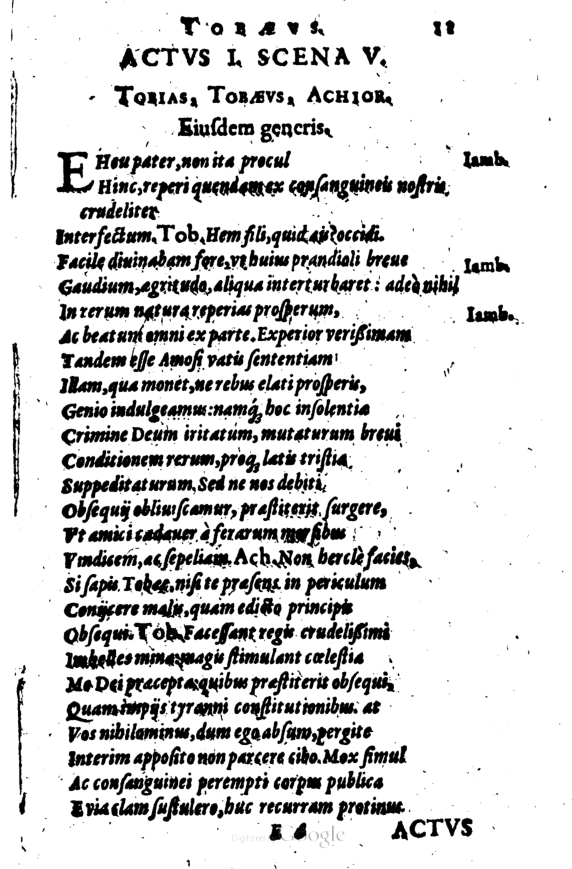 TOBÆVS.
ACTVS I. SCENA V.
TOBIAS, TOBÆVS, ACHIOR.
Eiuſdem generis.
EHeu pater, non ita procul Iamb.
Hinc, reperi quendam ex conſanguineis noſtris,
crudeliter
Interfectum. Tob. Hem fili, quid au? occidi.
Facile diuinabam fore, vt huius prandioli breue Iamb.
Gaudium, ægritudo, aliqua interturbaret: adeò nihil
In rerum natura reperias proſperum, Iamb.
Ac beatum omni ex parte. Experior verißimam
Tandem eſſe Amoſi vatis ſententiam
Illam, qua monet, ne rebus elati proſperis,
Genio indulgeamus: namq́; hoc inſolentiæ
Crimine Deum iritatum, mutaturum breui
Conditionem rerum, proq; latis triſtia
Suppeditaturum. Sed ne nos debiti
Obſequij obliuiſcamur, præſtiterit ſurgere,
Vt amici cadauer à ferarum morſibus
Vindicem, ac ſepeliam. Ach. Non herclè facies,
Si ſapis Tobæe, niſi te præſens in periculum
Conijcere malis, quam edicto principis
Obſequi. Tob. Faceſſant regis crudelißimi
Imbelles minæ: magis ſtimulant cœleſtia
Me Dei præcepta: quibus præſtiterit obſequi,
Quam impijs tyranni conſtitutionibus. at
Vos nihilominus, dum ego abſum, pergite
Interim appoſito non parcere cibo. Mox ſimul
Ac conſanguinei perempti corpus publica
E via clam ſuſtulero, huc recurram protinus.
ACTVS
Digitized by Google